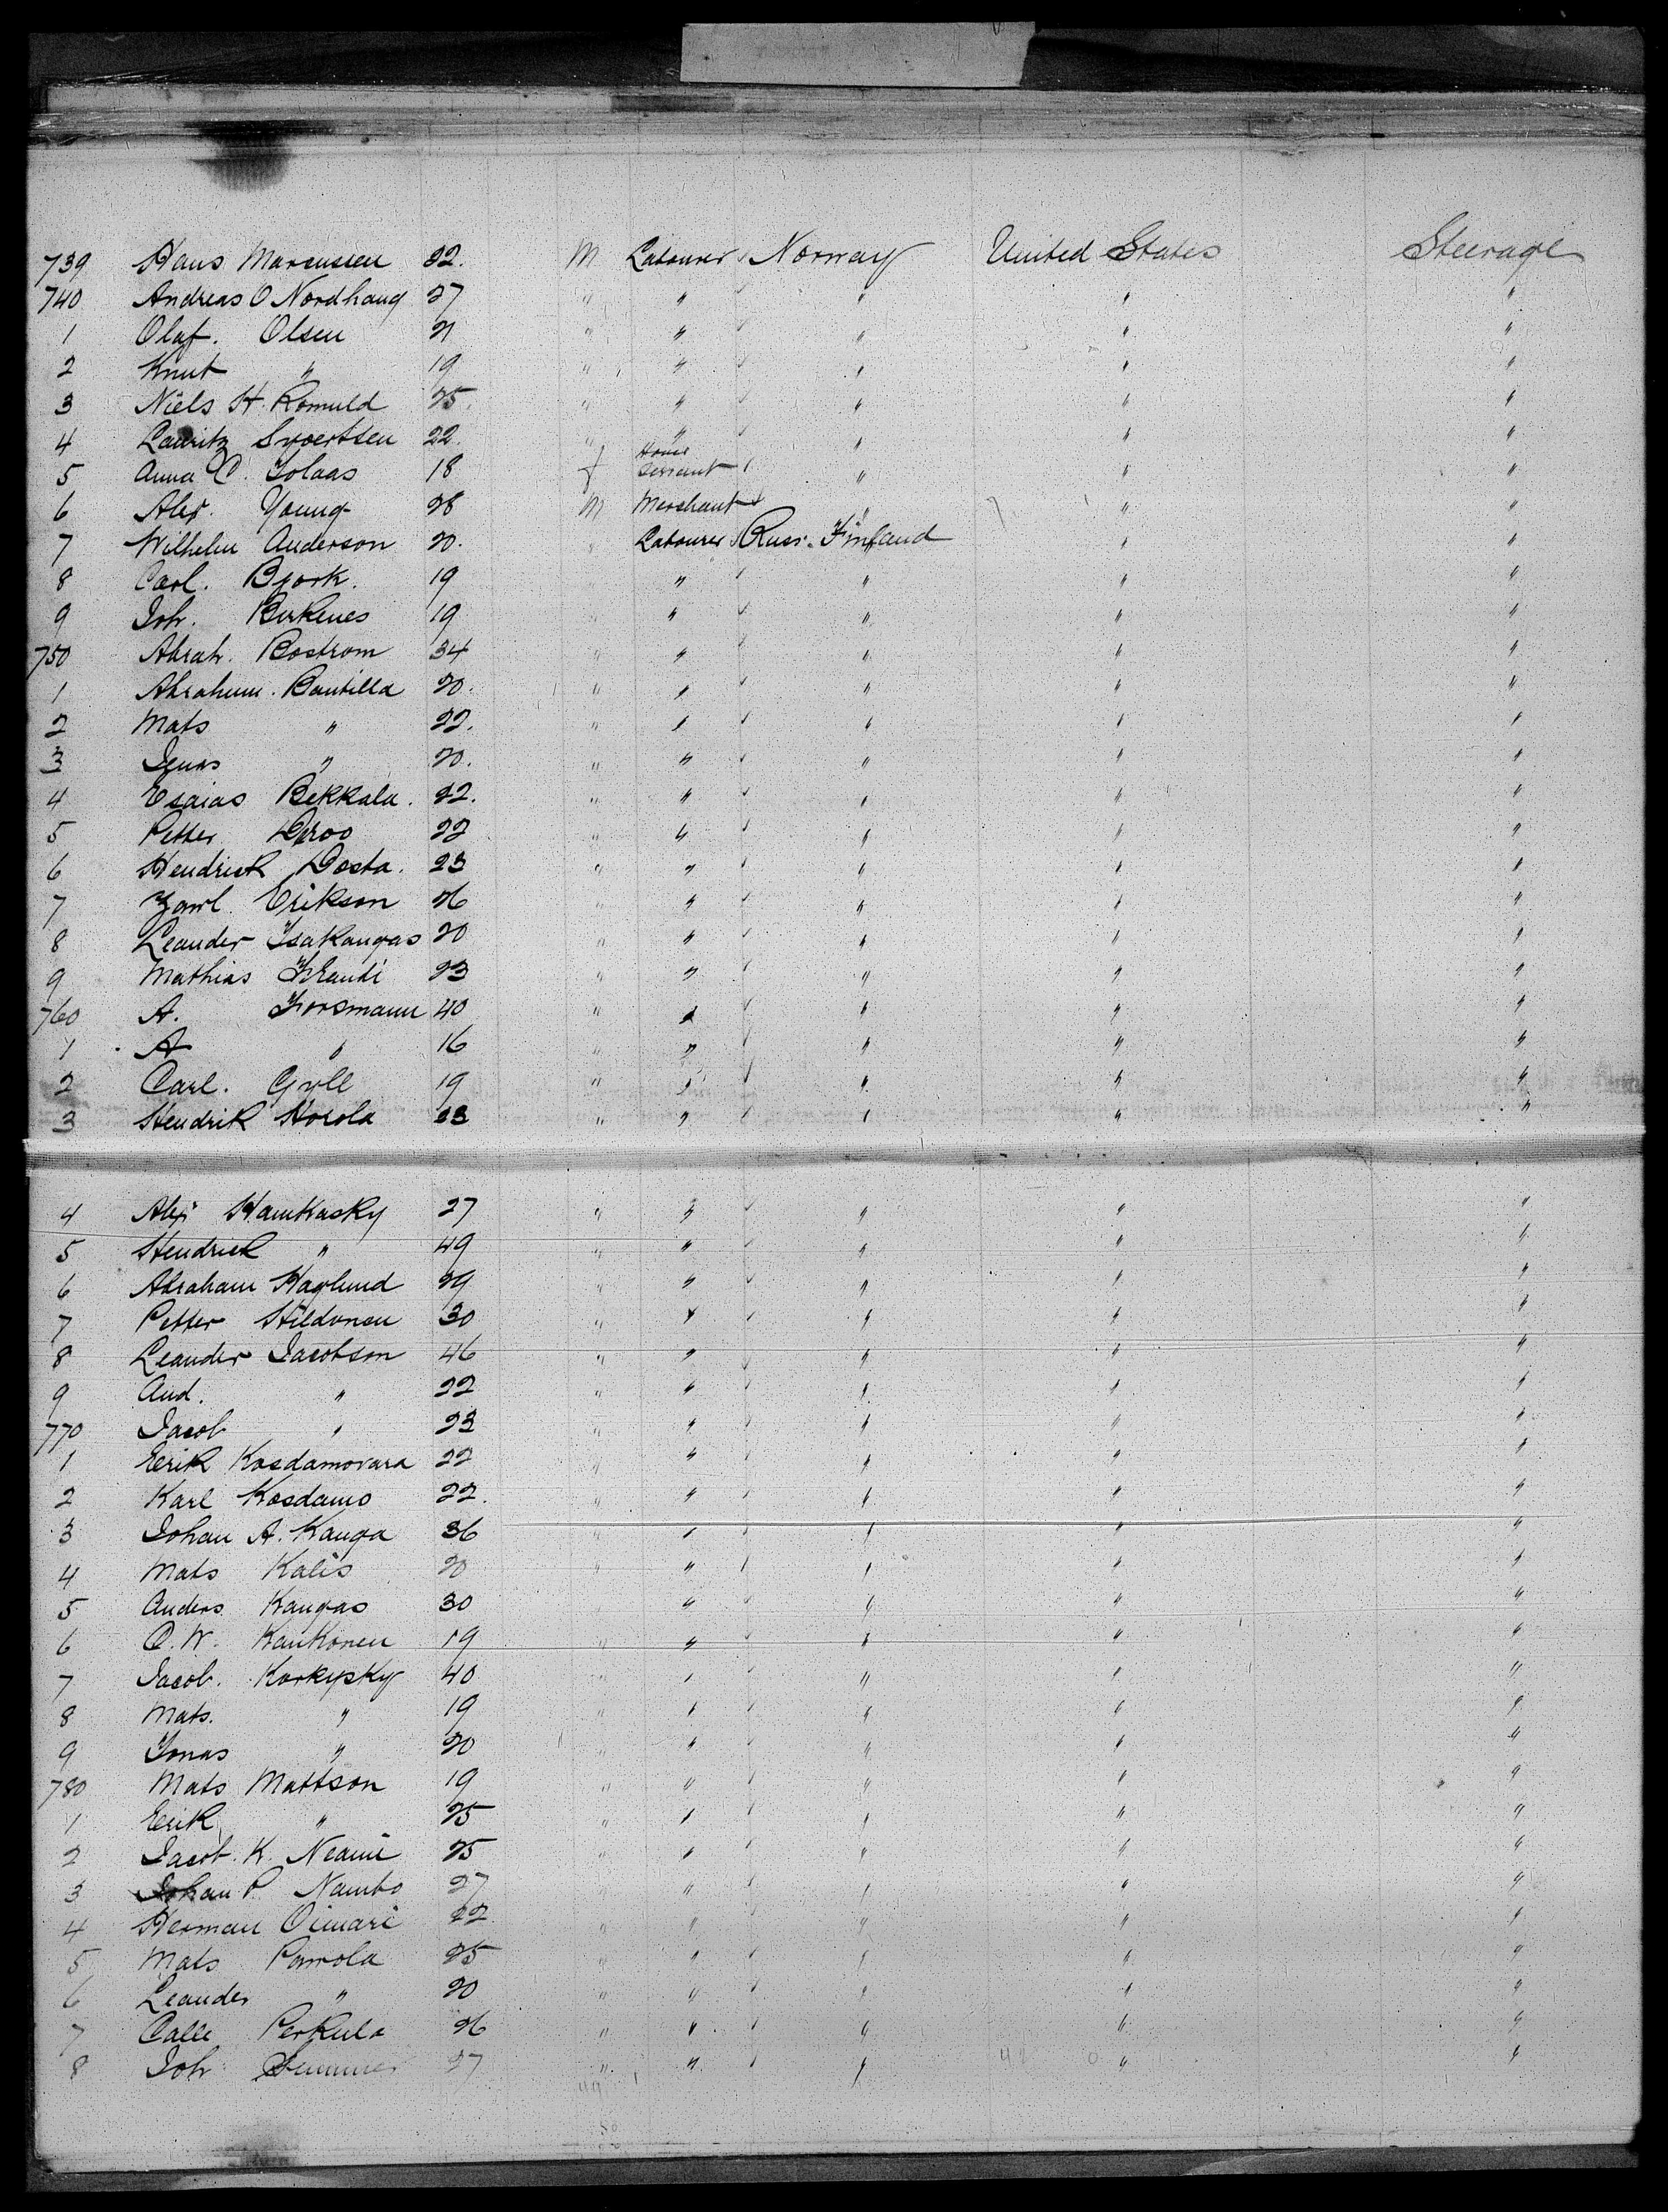 739 Hans Marcussen 22. M Labourer Norway United States Steerage
740 Andreas O Nordhaug 27 " " " " "
1 Olaf. Olsen 21 " " " " "
2 Knut " 19 " " " " "
3 Niels H. Romuld 25. " " " " "
4 Lauritz Syvertsen 22. " " " " "
5 Anna C. Tolaas 18 f House Servant " " "
6 Alex. Young 28 M Merchant " " "
7 Wilhelm Anderson 20. " Labourer Russ. Finland " "
8 Carl. Bjork. 19 " " " "
9 Joh. Birkenes 19 " " " " "
750 Abrah. Bostrom 34 " " " " "
1 Abraham. Bantilla 20. " " " " "
2 Mats " 22. " " " " "
3 " 20. " " " " "
4 Esaias Bekkala. 22. " " " " "
5 Petter 22 " " " " "
6 Hendrick Dosta. 23 " " " " "
7 Erikson 26 " " " " "
8 Leander Isakangas 20 " " " " "
9 Mathias 23 " " " " "
760 A. Forsmann 40 " " " " "
1 A " 16 " " " " "
2 Carl. Gyll 19 " " " " "
3 Hendrik Horola 23 " " " " "
4 Alex Hamkasky 27 " " " " "
5 Hendrick " 49 " " " " "
6 Abraham Haglund 29 " " " " "
7 Petter Hildonen 30 " " " " "
8 Leander Jacobson 46 " " " " "
9 And. " 22 " " " " "
770 Jacob " 23 " " " " "
1 Eerik Kosdamovara 22 " " " " "
2 Karl Kosdamo 22. " " " " "
3 Johan A. Kanga 36 " " " " "
4 Mats Kalis 20 " " " " "
5 Anders Kangas 30 " " " " "
6 O. W. Kaukonen 19 " " " " "
7 Jacob. Korkysky 40 " " " " "
8 Mats. " 19 " " " " "
9 Jonas " 20 " " " " "
780 Mats Mattson 19 " " " " "
1 Eerik " 25 " " " " "
2 Jacob. K. Neami 25 " " " " "
3 Johan P. Nambo 27 " " " " "
4 Herman Oimari 22 " " " " "
5 Mats Pamola 25 " " " " "
6 Leander " 20 " " " " "
7 Calle Perkula 26 " " " " "
8 Joh 27 " " " " "